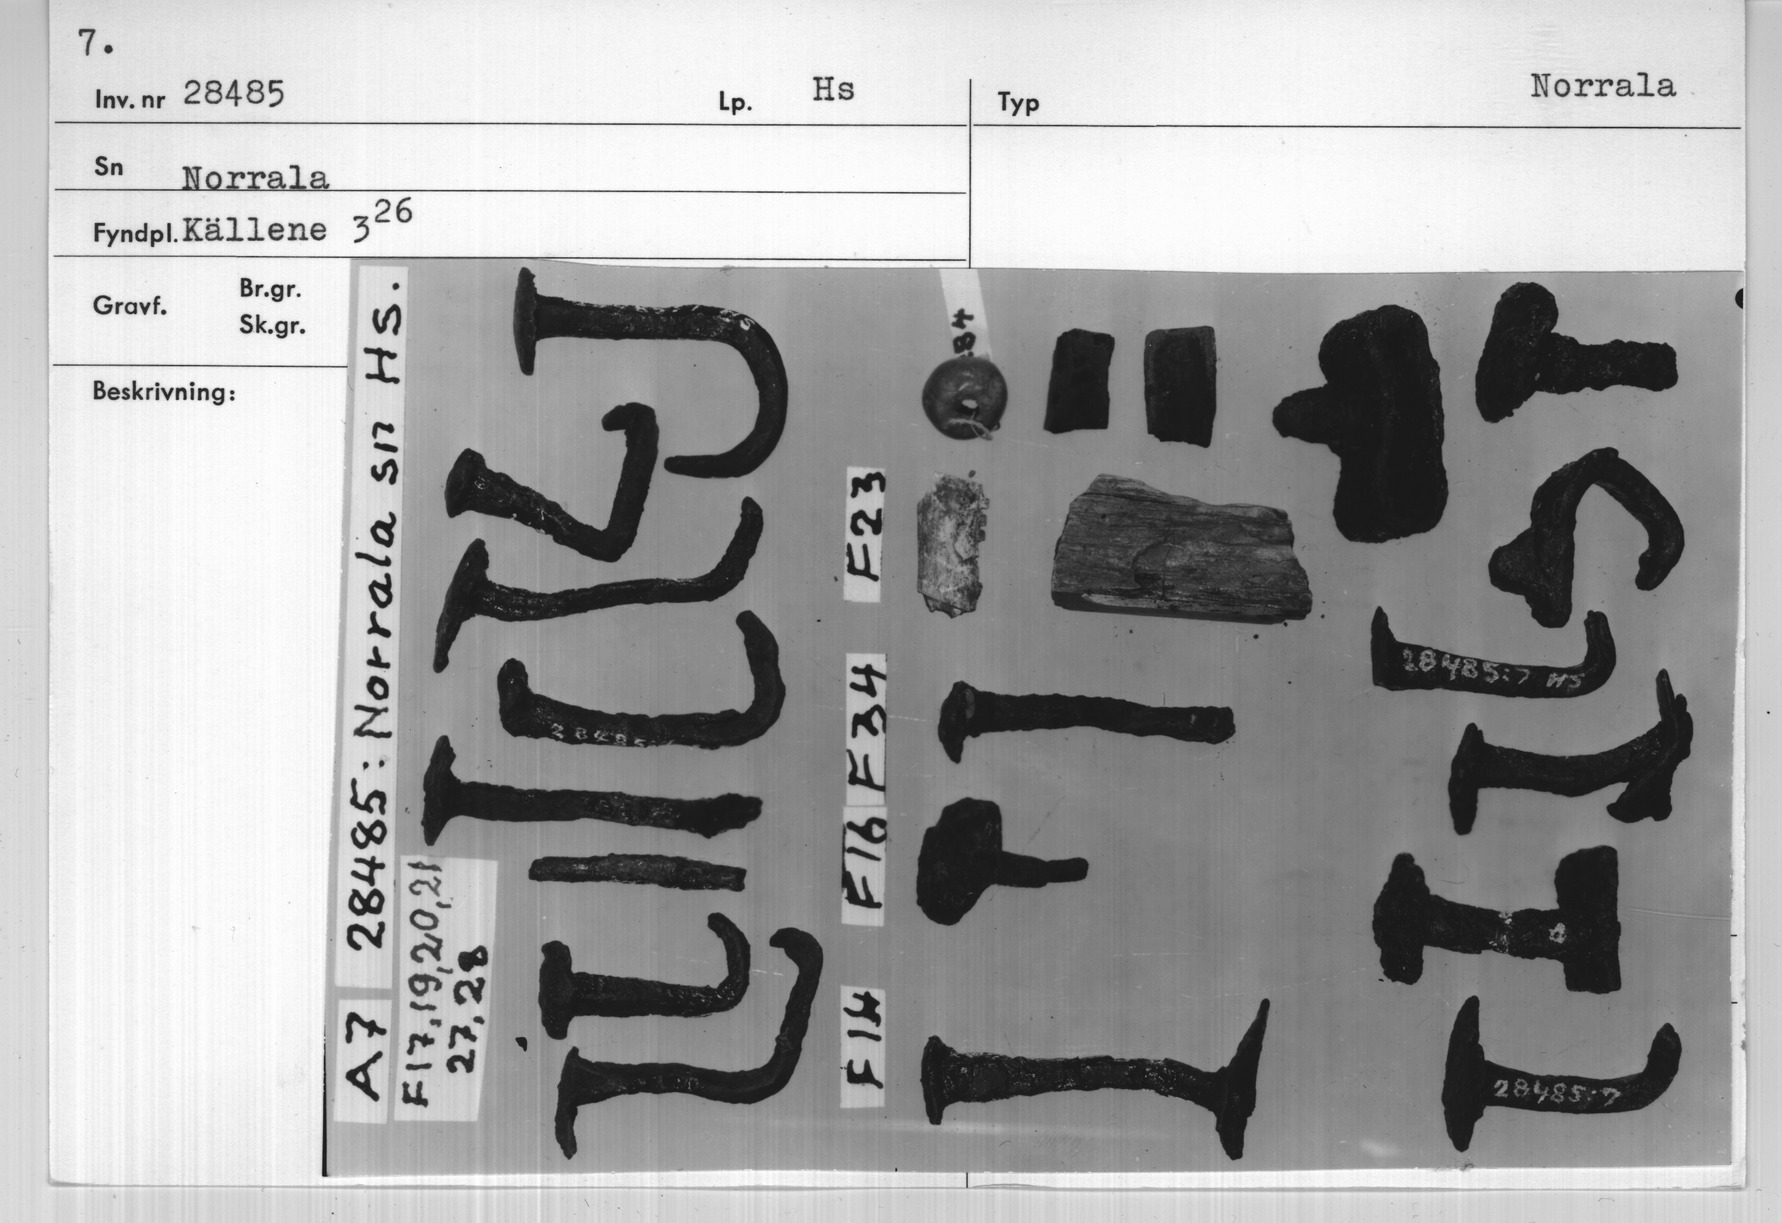 7.
Inv. nr 28485 Lp. Hs Typ Norrala
Sn Norrala
Fyndpl. Källene 3²⁶
Gravf. Br.gr.
Sk.gr.
Beskrivning:
A7 28485: Norrala sn HS.
F17,19,20,21
27,28
F14 F16 F34 F23
84
28485:7 HS
28485:7